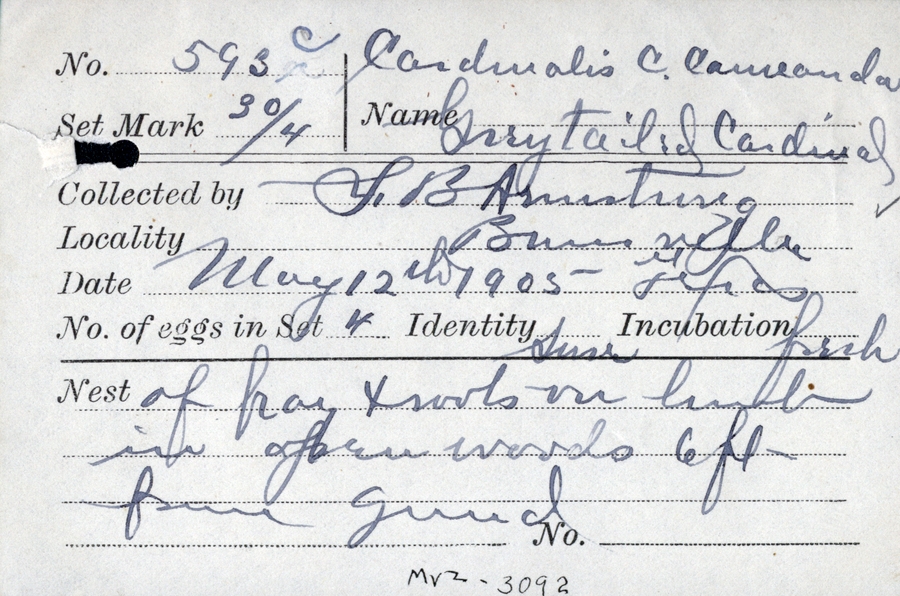 No. 593 c Cardinalis c. canicauda
Set Mark 30/4 Name Greytailed Cardinal
Collected by F. B. Armstrong
Locality Brownsville
Date May 12th 1905 - Texas
No. of eggs in Set 4 Identity Sure Incubation fresh
Nest of hay & roots on limb
in open woods 6 ft
from ground
No.
Mvz - 3092